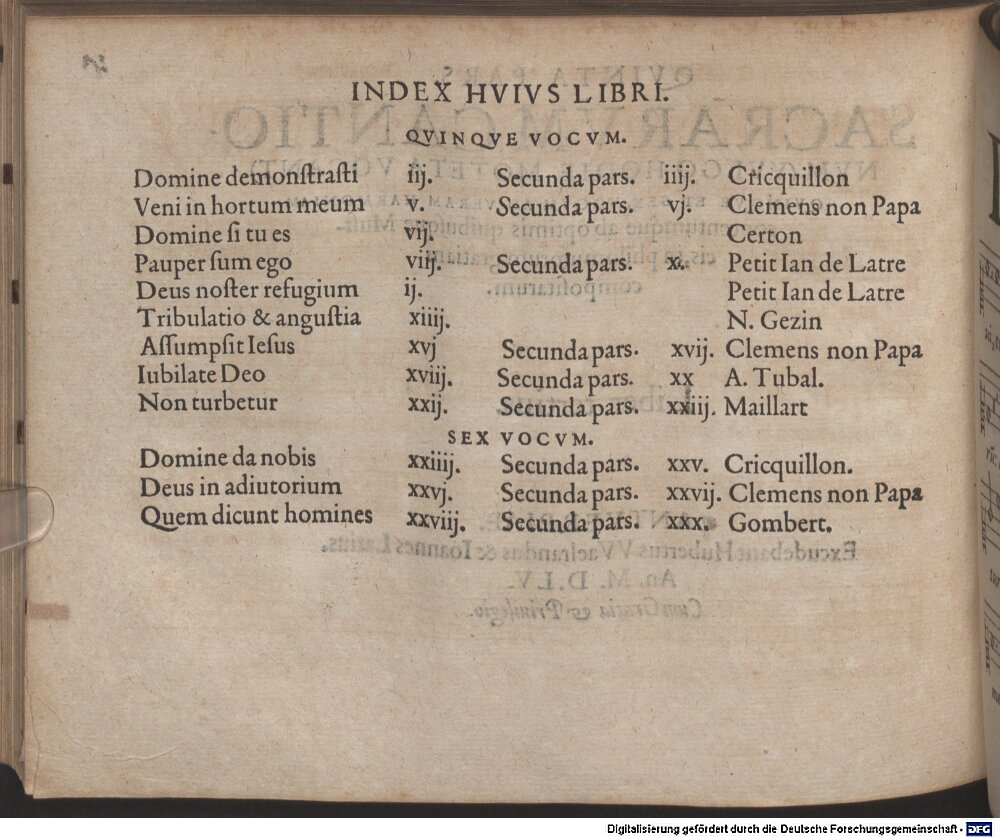 INDEX HVIVS LIBRI.
QVINQVE VOCVM.
Domine demonſtraſti iij. Secunda pars. iiij. Cricquillon
Veni in hortum meum v. Secunda pars. vj. Clemens non Papa
Domine ſi tu es vij. Certon
Pauper ſum ego viij. Secunda pars. x. Petit Ian de Latre
Deus noſter refugium ij. Petit Ian de Latre
Tribulatio & anguſtia xiiij. N. Gezin
Aſſumpſit Ieſus xvj Secunda pars. xvij. Clemens non Papa
Iubilate Deo xviij. Secunda pars. xx A. Tubal.
Non turbetur xxij. Secunda pars. xxiij. Maillart
SEX VOCVM.
Domine da nobis xxiiij. Secunda pars. xxv. Cricquillon.
Deus in adiutorium xxvj. Secunda pars. xxvij. Clemens non Papa
Quem dicunt homines xxviij. Secunda pars. xxx. Gombert.
Digitalisierung gefördert durch die Deutsche Forschungsgemeinschaft - DFG